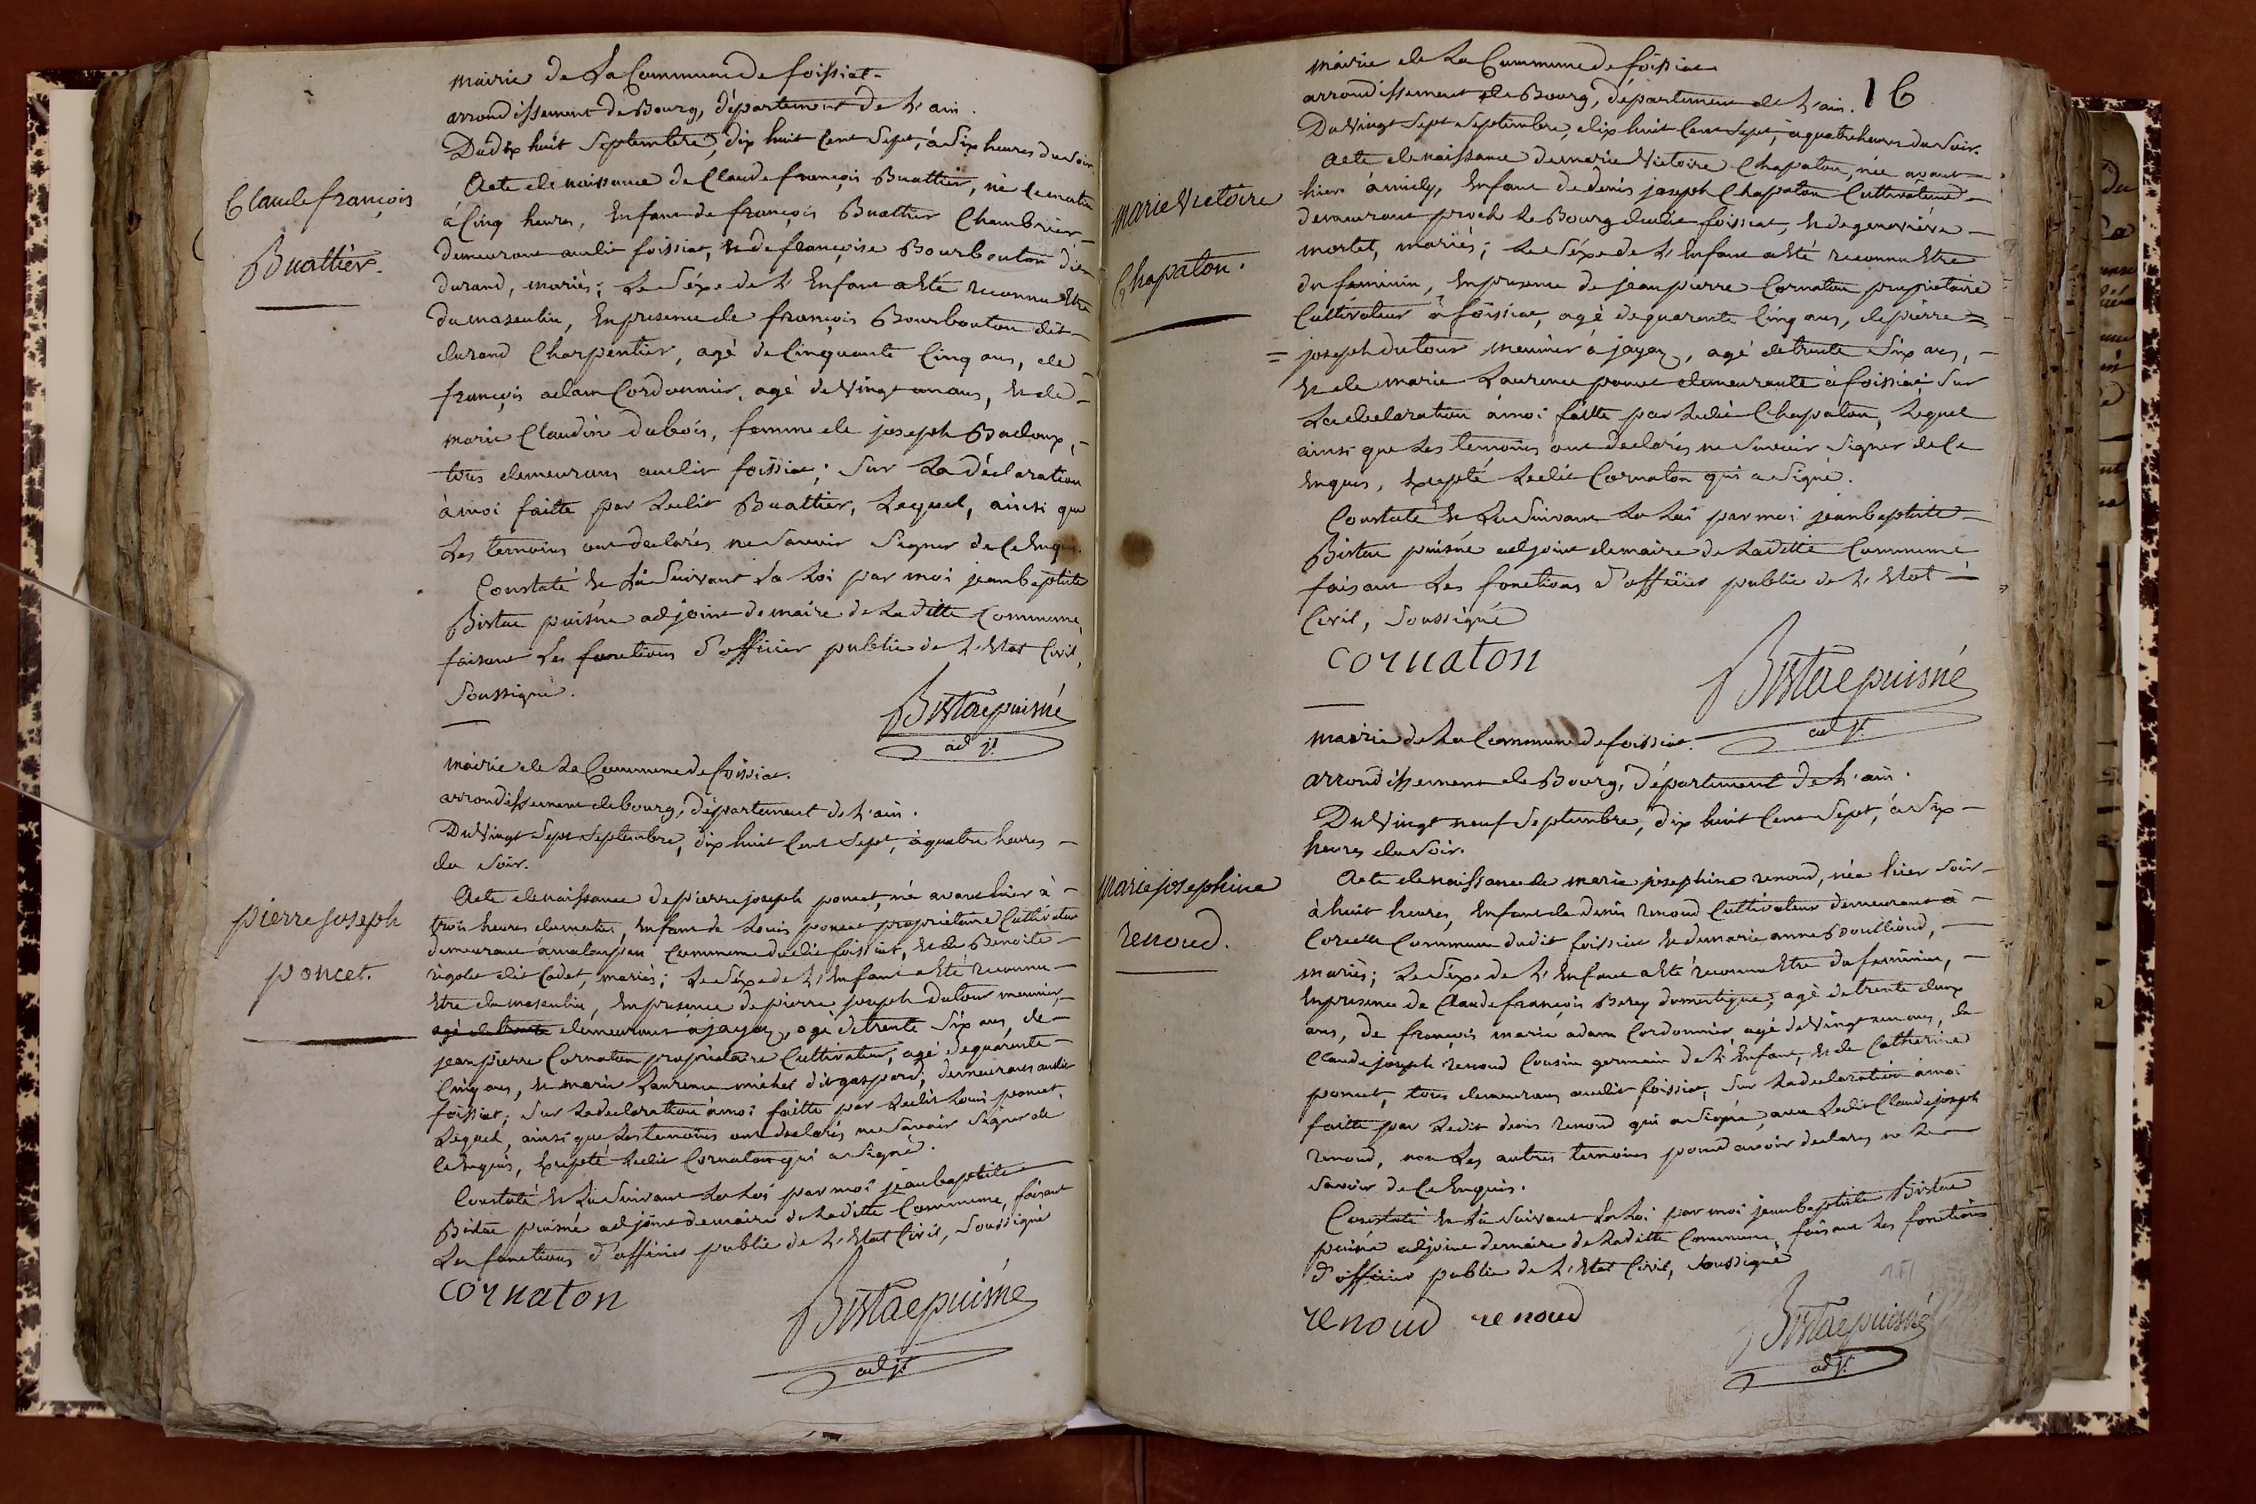 Claude françois
Buattier.
mairie de La Commune de foissiat
arrondissement de Bourg, département de L'ain.
Du dix huit Septembre, dix huit Cent Sept, à Six heures du Soir.
Acte de naissance de Claude françois Buattier, né ce matin
à Cinq heures, Enfant de françois Buattier Chambrier
demeurant audit foissiat, et de françoise Bourbouton dit
durand, mariés; Le Séxe de L'Enfant a Eté reconnu Etre
du masculin, En presence de françois Bourbouton dit
durand Charpentier, agé de Cinquante Cinq ans, de
françois adam Cordonnier, agé de Vingt un ans, et de
marie Claudine dubois, femme de joseph Badoux,
tous demeurans audit foissiat; Sur La déclaration
à moi faitte par Ledit Buattier, Lequel, ainsi que
Les temoins ont declarés ne Savoir Signer de Ce Enquis.
Constaté et Lu Suivant La Loi par moi jean baptiste
Bistac puisné adjoint de maire de Laditte Commune,
faisant Les fonctions d'officier public de L'Etat Civil,
Soussigné.
Bistac puisné
adjt
pierre joseph
poncet.
mairie de La Commune de foissiat.
arrondissement de bourg, département de L'ain.
Du Vingt Sept Septembre, dix huit Cent Sept, à quatre heures
du Soir.
Acte de naissance de pierre joseph poncet, né avant hier à
trois heures du matin, Enfant de Louis poncet propriétaire Cultivateur
demeurant à Commune dudit foissiat, et de Benoite
rigolet dit Cadet, mariés; Le Séxe de L'Enfant a Eté reconnu
Etre du masculin, En presence de pierre joseph dutour meunier,
agé de trente demeurant à jayat, agé de trente Six ans, de
jean pierre Cornaton propriétaire Cultivateur, agé de quarante
Cinq ans, et marie Laurence michel dit gaspard, demeurans audit
foissiat; Sur La declaration à moi faitte par Ledit Louis poncet,
Lequel, ainsi que Les temoins ont declarés ne Savoir Signer de
Ce Enquis, Exepté Ledit Cornaton qui a Signé.
Constaté et Lu Suivant La Loi par moi jean baptiste
Bistac puisné adjoint de maire de Laditte Commune, faisant
Les fonctions d'officier public de L'Etat Civil, Soussigné
cornaton
Bistac puisné
adjt
16
Marie Victoire
Chapaton.
mairie de La Commune de foissiat
arrondissement de Bourg, département de L'ain.
Du Vingt Sept Septembre, dix huit Cent Sept, à quatre heures du Soir.
Acte de naissance de marie Victoire Chapaton, née avant
hier à midy, Enfant de denis joseph Chapaton Cultivateur
demeurant proche Le Bourg dudit foissiat, et de genevieve
mortet, mariés; Le Séxe de L'Enfant a Eté reconnu Etre
du feminin, En presence de jean pierre Cornaton propriétaire
Cultivateur à foissiat, agé de quarente Cinq ans, de pierre =
= joseph dutour meunier à jayat, agé de trente Six ans,
et de marie Laurence poncet demeurante à foissiat; Sur
La declaration à moi faitte par Ledit Chapaton, Lequel
ainsi que Les temoins ont declarés ne Savoir Signer de Ce
Enquis, Exepté Ledit Cornaton qui a Signé.
Constaté et Lu Suivant La Loi par moi jean baptiste
Bistac puisné adjoint de maire de Laditte Commune
faisant Les fonctions d'officier public de L'Etat
Civil, Soussigné
cornaton
Bistac puisné
adjt
Marie josephine
renoud.
mairie de La Commune de foissiat.
arrondissement de Bourg, département de L'ain.
Du Vingt neuf Septembre, dix huit Cent Sept, à Six
heures du Soir.
Acte de naissance de marie josephine renoud, née hier Soir
à huit heures, Enfant de denis renoud Cultivateur demeurant à
Commune dudit foissiat et de marie anne
mariés; Le Séxe de L'Enfant a Eté reconnu Etre du feminin,
En presence de Claude françois Berey domestique, agé de trente deux
ans, de françois marie adam Cordonnier agé de Vingt un ans, de
Claude joseph renoud Cousin germain de L'Enfant, et de Catherine
poncet, tous demeurans audit foissiat, Sur La declaration à moi
faitte par Ledit denis renoud qui a Signé, avec Ledit Claude joseph
renoud, non Les autres temoins pour avoir declarés ne Le
Savoir de Ce Enquis.
Constaté et Lu Suivant La Loi par moi jean baptiste Bistac
puisné adjoint de maire de Laditte Commune, faisant Les fonctions
d'officier public de L'Etat Civil, Soussigné
renoud renoud
Bistac puisné
adjt